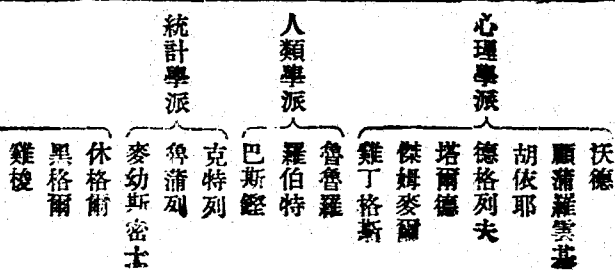 心理學派
沃德
顧蒲羅雲基
胡依耶
德格列夫
塔爾德
傑姆麥爾
雞丁格斯
人類學派
魯魯羅
羅伯特
巴斯鏗
統計學派
克特列
魯蒲列
麥幼斯密士
休格爾
黑格爾
雞梭